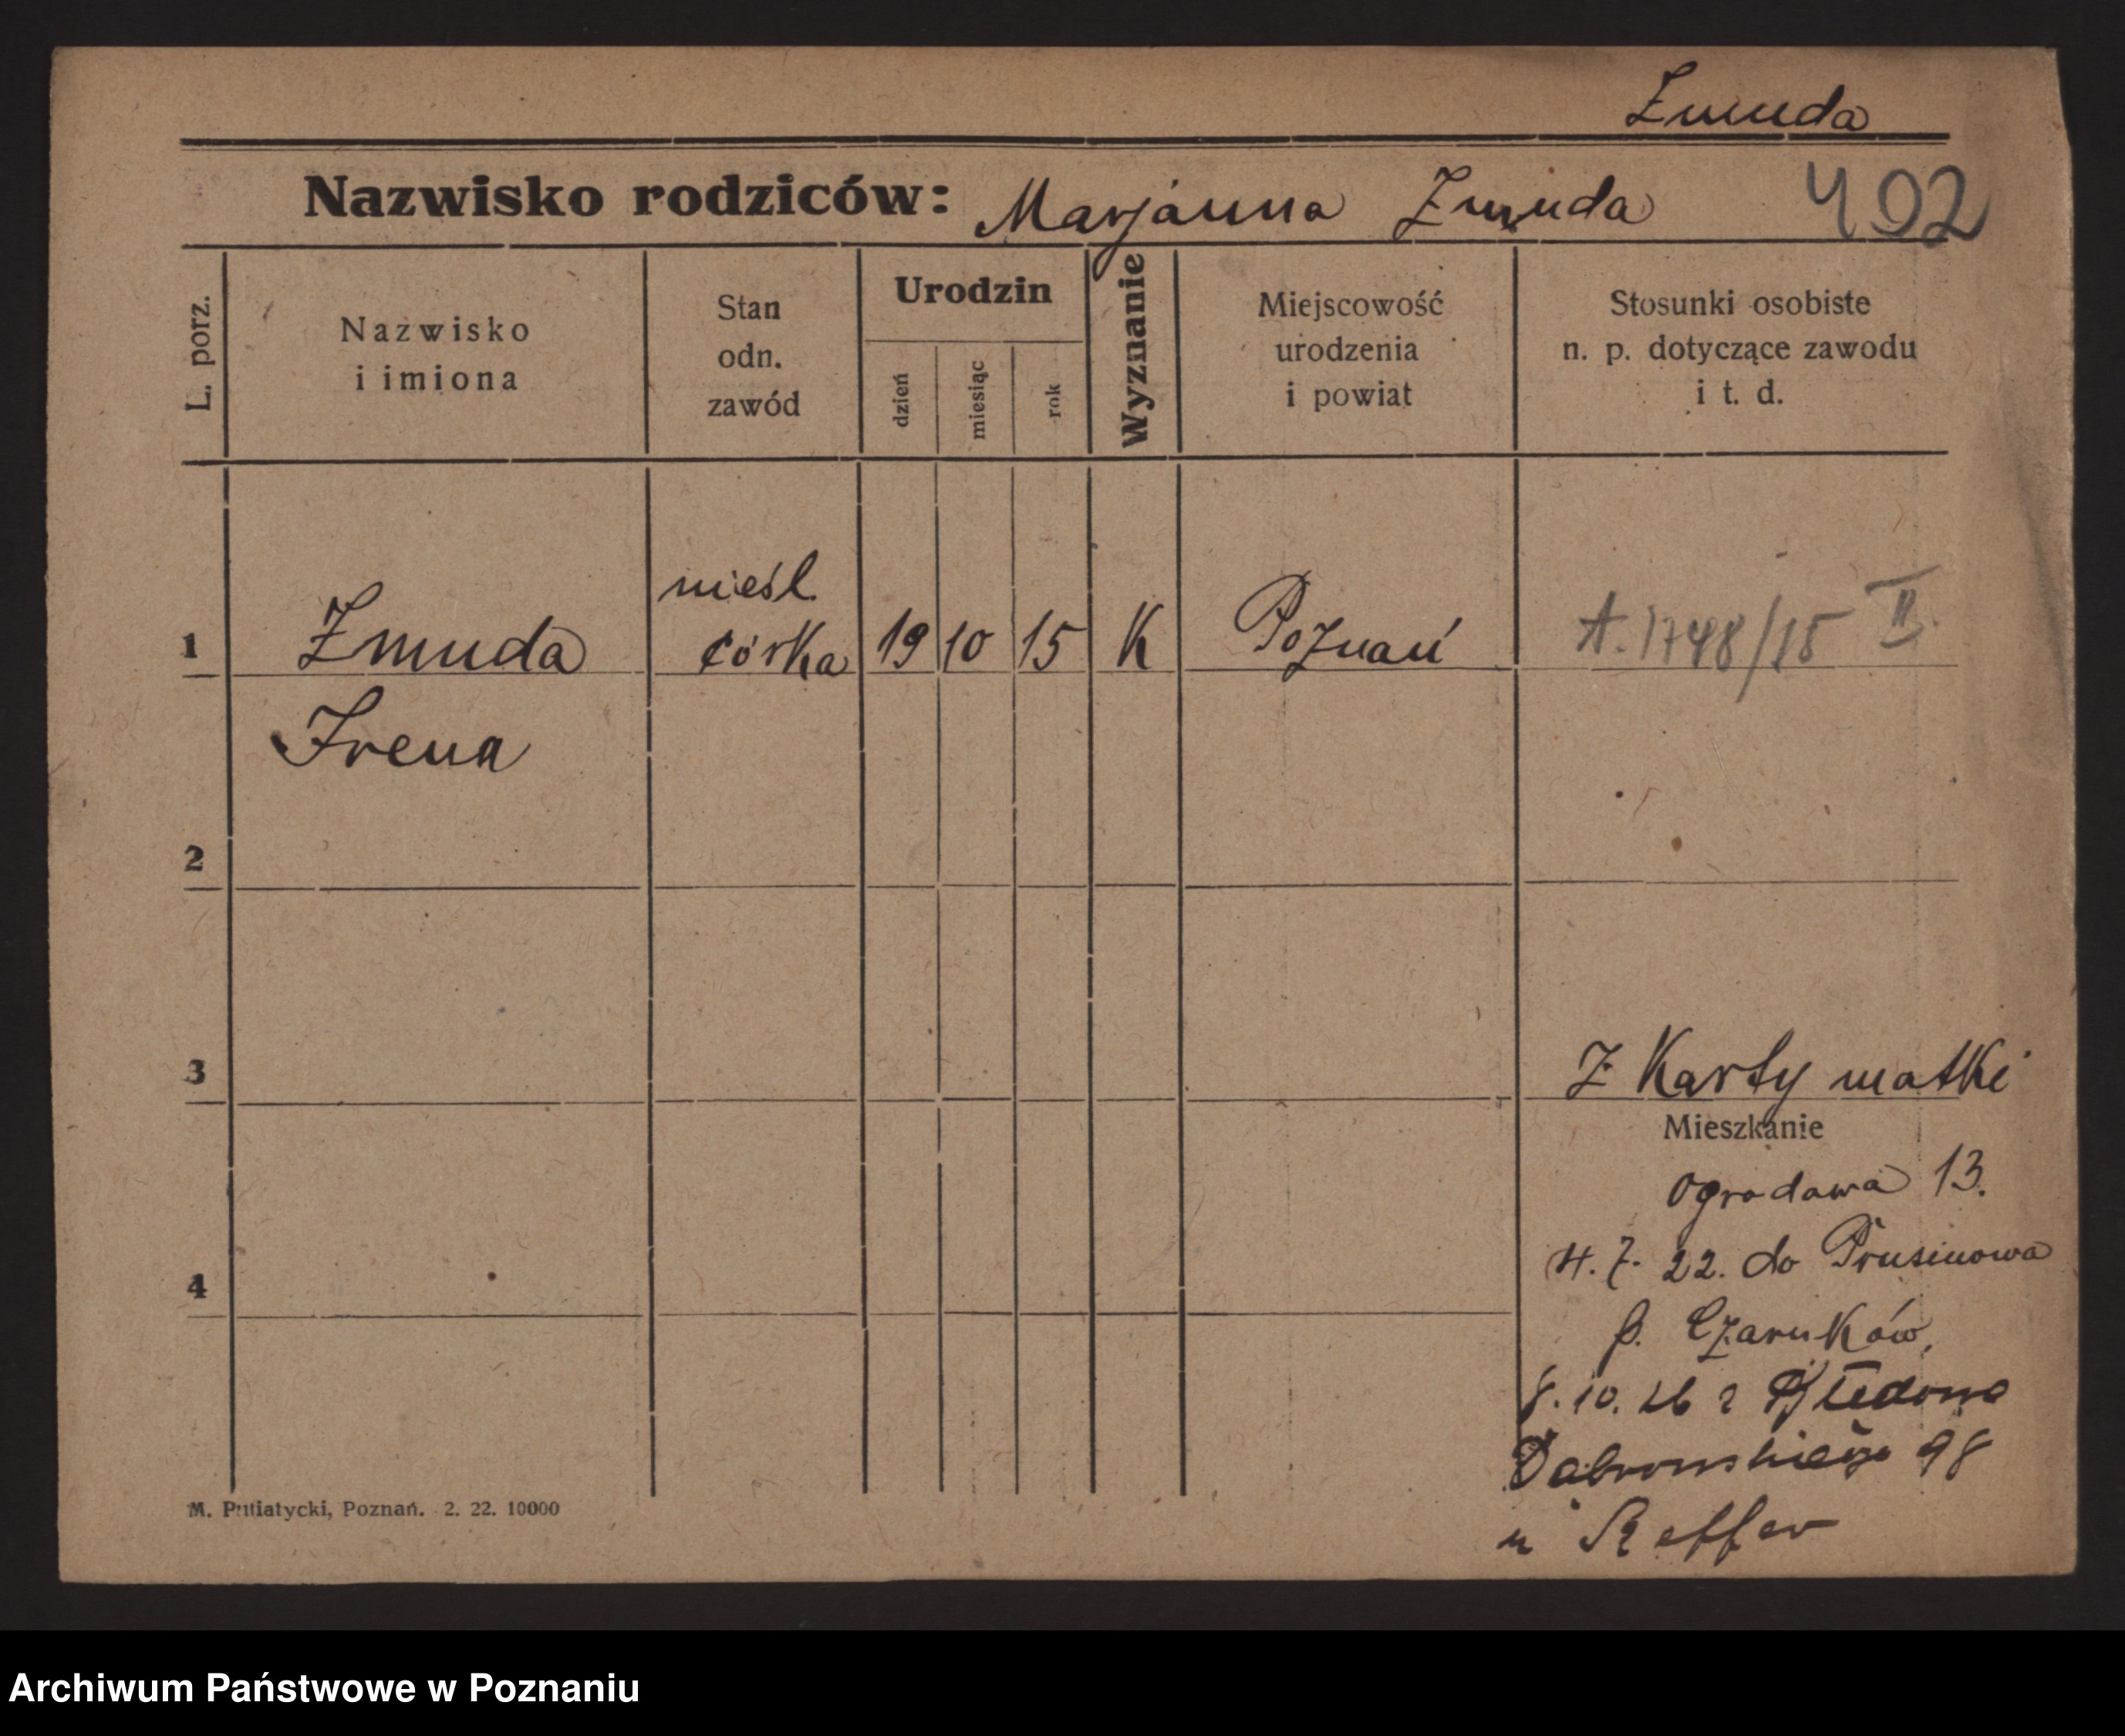 Zmuda
Nazwisko rodziców: Marjanna Zmuda 402
L. porz.
Nazwisko
i imiona
Stan
odn.
zawód
Urodzin
dzień
miesiąc
rok
Wyznanie
Miejscowość
urodzenia
i powiat
Stosunki osobiste
n. p. dotyczące zawodu
i t. d.
nieśl.
1 Zmuda córka 19 10 15 K Poznań A. 1748/15 II.
Irena
2
3
Z Karty matki
Mieszkanie
Ogrodowa 13.
4. 7. 22. do Prusinowa
4
p. Czarnków,
8. 10. 26 z
Dabrowskiego 98
u Reffer
M. Putiatycki, Poznań. 2. 22. 10000
Archiwum Państwowe w Poznaniu